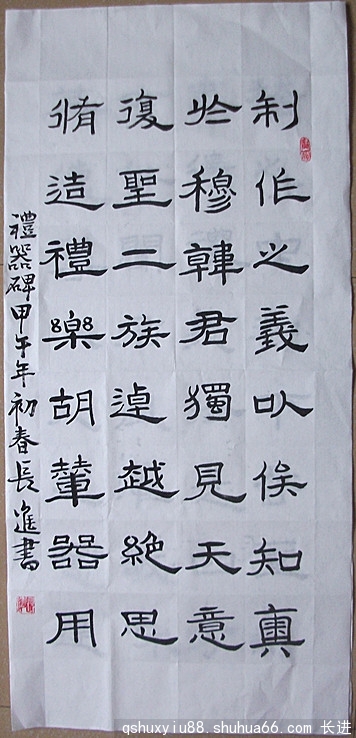 制作之義以俟知奧
於穆韓君獨見天意
復聖二族逴越絕思
脩造禮樂胡輦器用
禮器碑甲午年初春長進書
qshuxyiu88.shuhua66.com 长进